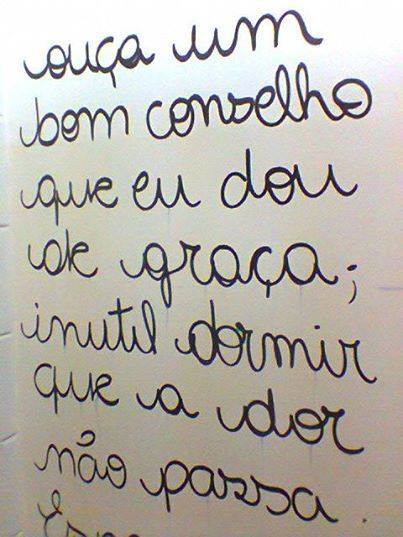 ouça um
bom conselho
que eu dou
de graça;
inutil dormir
que a dor
não passa.